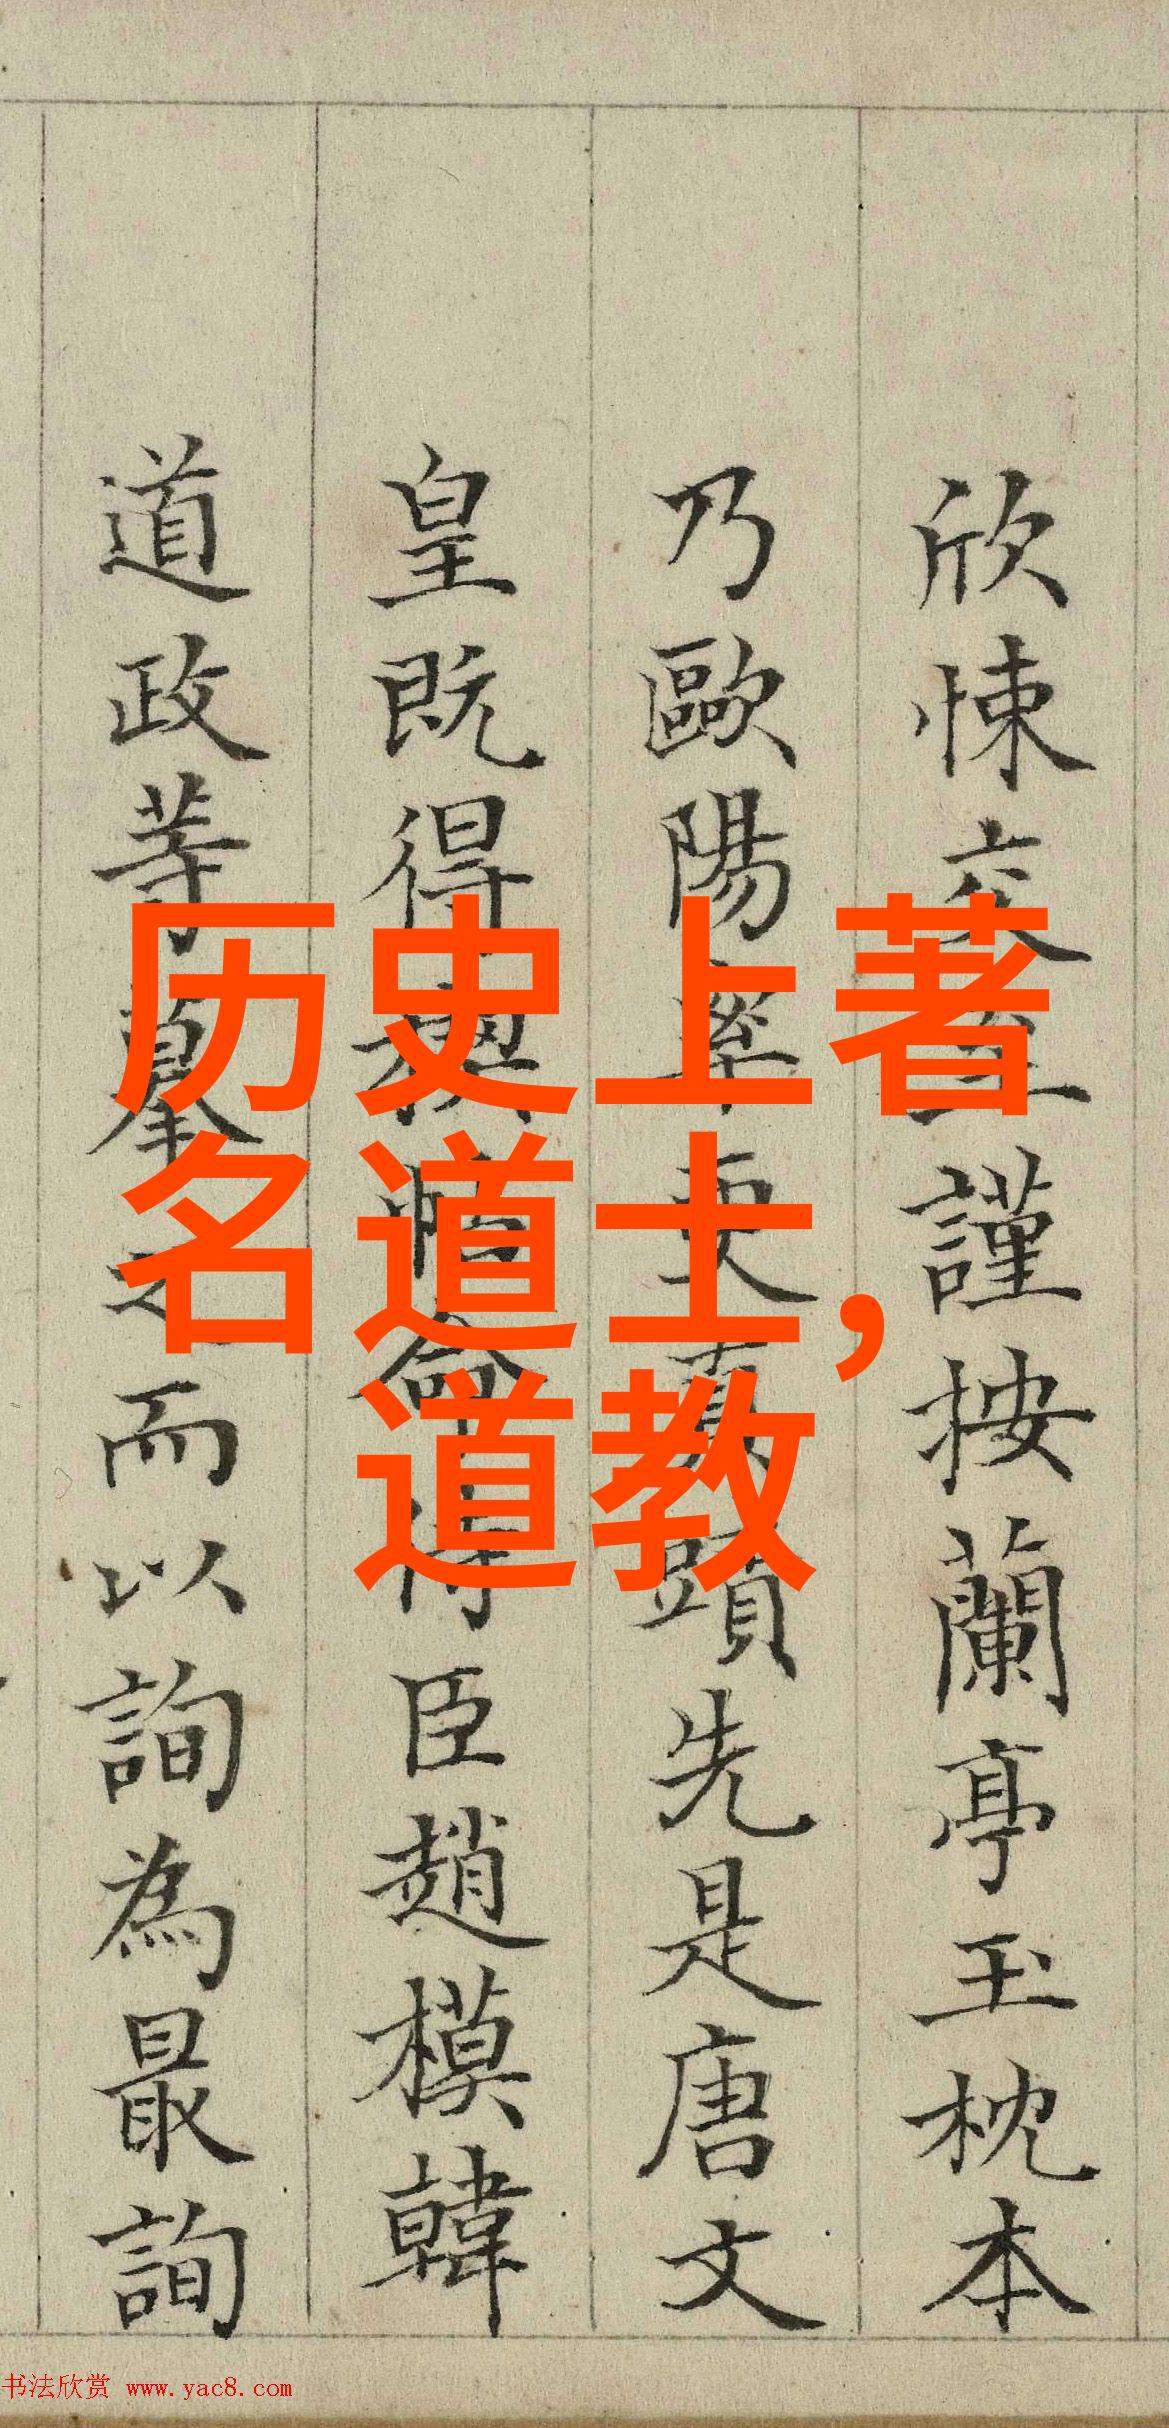 历史上著
名道士,
道教
欣悚交至謹按蘭亭玉枕本
乃歐陽率更真蹟先是唐文
皇既得稧帖命侍臣趙模韓
道政等摹之而以詢為最詢
书法欣赏 www.yac8.com